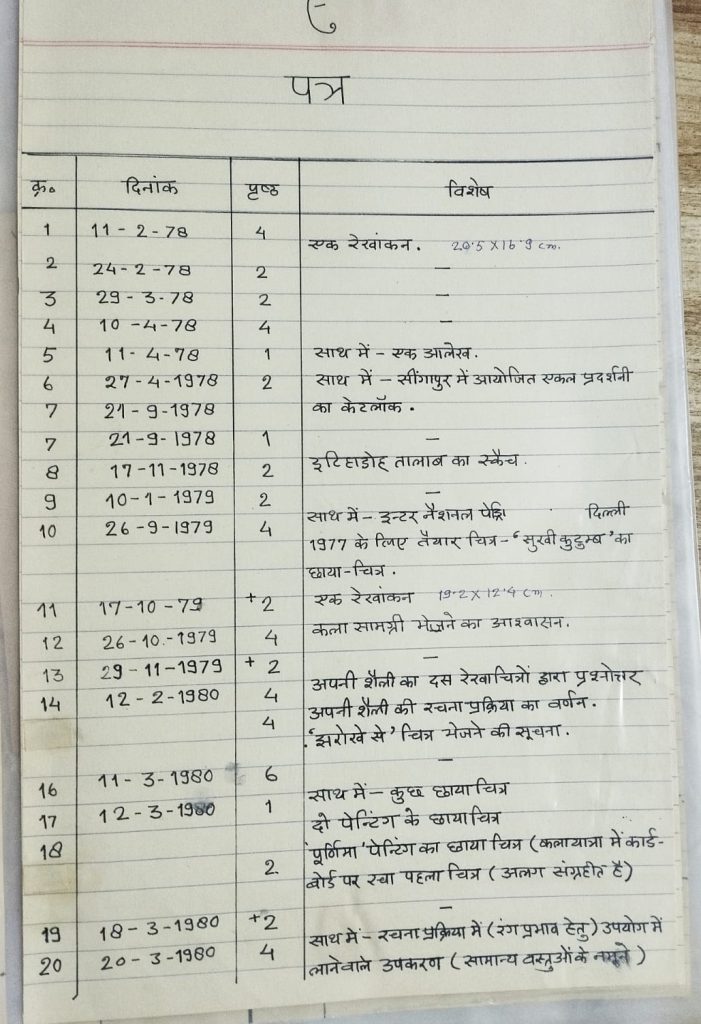 पत्र
क्र. दिनांक पृष्ठ विशेष
1 11-2-78 4
एक रेखांकन. 20.5 X 16.9 cm.
2 24-2-78 2 —
3 29-3-78 2 —
4 10-4-78 4 —
5 11-4-78 1 साथ में - एक आलेख.
6 27-4-1978 2 साथ में - सींगापुर में आयोजित एकल प्रदर्शनी
7 21-9-1978 का केटलॉक.
7 21-9-1978 1 —
8 17-11-1978 2 इटिहाडोह तालाब का स्कैच.
9 10-1-1979 2 —
10 26-9-1979 4 साथ में - इन्टर नैशनल दिल्ली
1977 के लिए तैयार चित्र - 'सुखी कुटुम्ब' का
छाया-चित्र.
11 17-10-79 +2 एक रेखांकन 19.2 X 12.4 cm.
12 26-10-1979 4 कला सामग्री भेजने का आश्वासन.
13 29-11-1979 +2 —
14 12-2-1980 4 अपनी शैली का दस रेखाचित्रों द्वारा प्रश्नोत्तर
4 अपनी शैली की रचना प्रक्रिया का वर्णन.
'झरोखे से' चित्र भेजने की सूचना.
16 11-3-1980 6 —
17 12-3-1980 1 साथ में - कुछ छायाचित्र
दो पेन्टिंग के छायाचित्र
18 'पूर्णिमा' पेन्टिंग का छाया चित्र (कलायात्रा में कार्ड-
2. बोर्ड पर रचा पहला चित्र (अलग संग्रहीत है)
19 18-3-1980 +2 —
20 20-3-1980 4 साथ में - रचना प्रक्रिया में (रंग प्रभाव हेतु) उपयोग में
लाने वाले उपकरण (सामान्य वस्तुओं के नमूने)